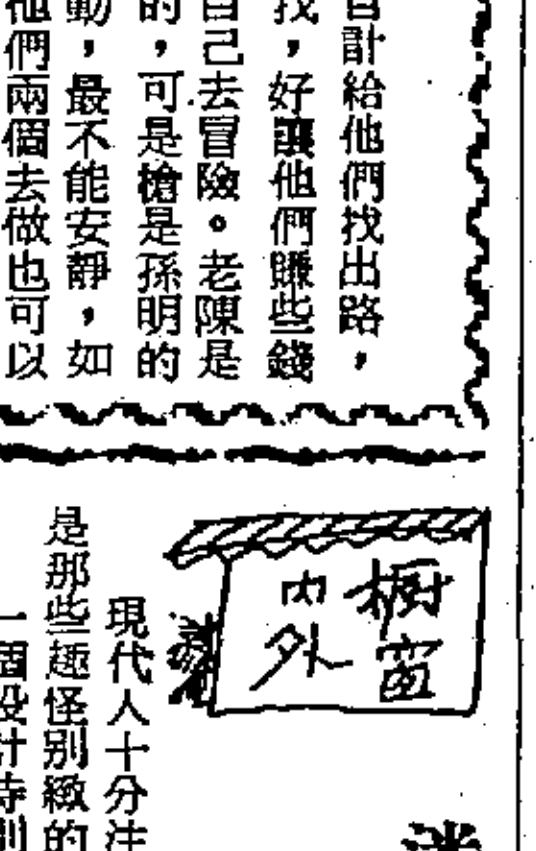 計給他們找出路，
找，好讓他們賺些錢
自己去冒險。老陳是
的，可是槍是孫明的
動，最不能安靜，如
他們兩個去做也可以
櫥窗
內外
現代人十分注
是那些趣怪别緻的
一個設計特別